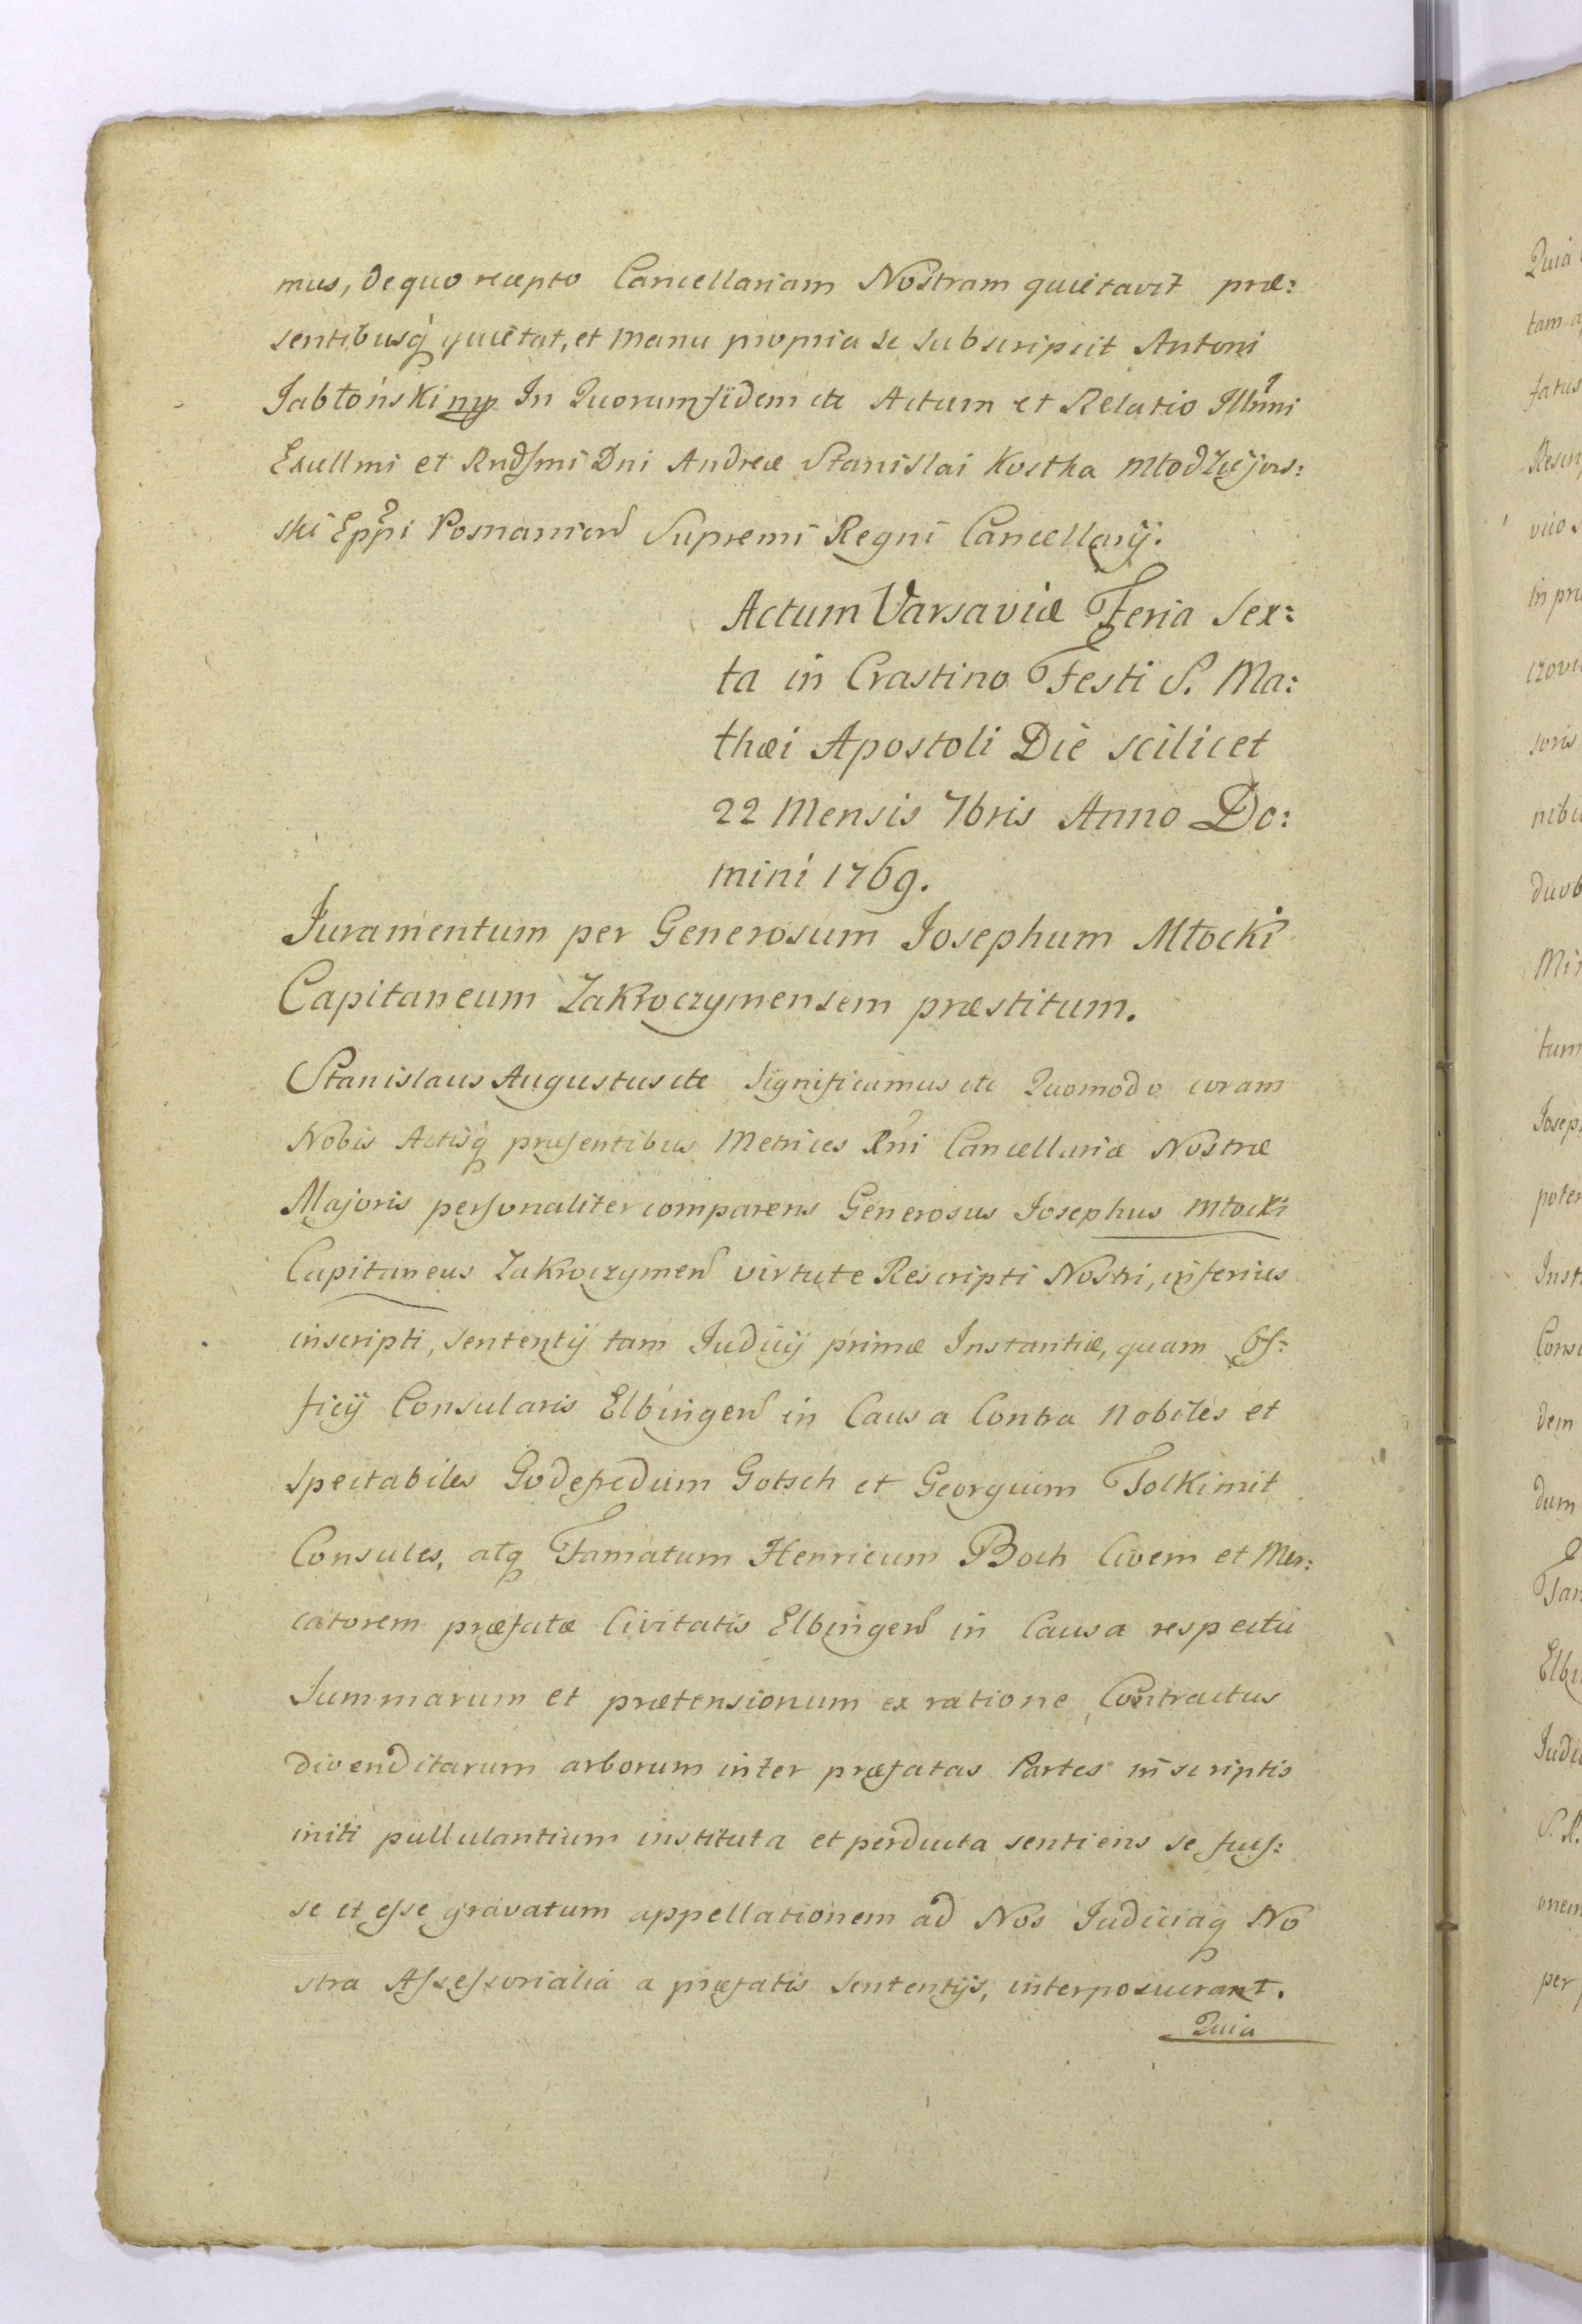 mus, de quo recepto Cancellariam Nostram quietavit præ:
sentibusq́ quietat, et manu propria se subscripsit Antoni
Jabłoński mp In Quorum fidem etc Actum et Relatio Illmi
Excellmi et Rndſmi Dni Andreæ Stanislai Kostka Młodziejows:
ski Eppi Posnanien Supremi Regni Cancellarij.
Actum Varsaviæ Feria Sex:
ta in Crastino Festi S. Ma:
thæi Apostoli Die scilicet
22 Mensis 7bris Anno Do:
mini 1769.
Juramentum per Generosum Josephum Młocki
Capitaneum Zakroczymensem præstitum.
Stanislaus Augustus etc Significamus etc Quomodo coram
Nobis Actisq́ præsentibus Metrices Rni Cancellariæ Nostræ
Majoris perſonaliter comparens Generosus Josephus Młocki
Capitaneus Zakroczymen virtute Rescripti Nostri, inferius
inscripti, Sententij tam Judicij primæ Instantiæ, quam Of:
ficij Consularis Elbingen in Causa Contra Nobiles et
Spectabiles Godefredum Gotsch et Georgium Tolkimit
Consules, atq Famatum Henricum Boch Civem et Mer:
catorem præfatæ Civitatis Elbingen in Causa respectu
Summarum et prætensionum ex ratione Contractus
divenditarum arborum inter præfatas Partes in scriptis
initi pullulantium instituta et perducta sentiens se fuiſ:
se et eſse gravatum appellationem ad Nos Judiciaq No
stra Aſseſsorialia a præfatis Sententijs, interposuerant.
Quia
Quia
tam a
fatus
Rescri
vito s
in pra
czovi
soris
nibu
duob
tum
Josep
poter
Inst
Cons
dem
dum
Fam
Elbi
Judi
S. R.
onem
per